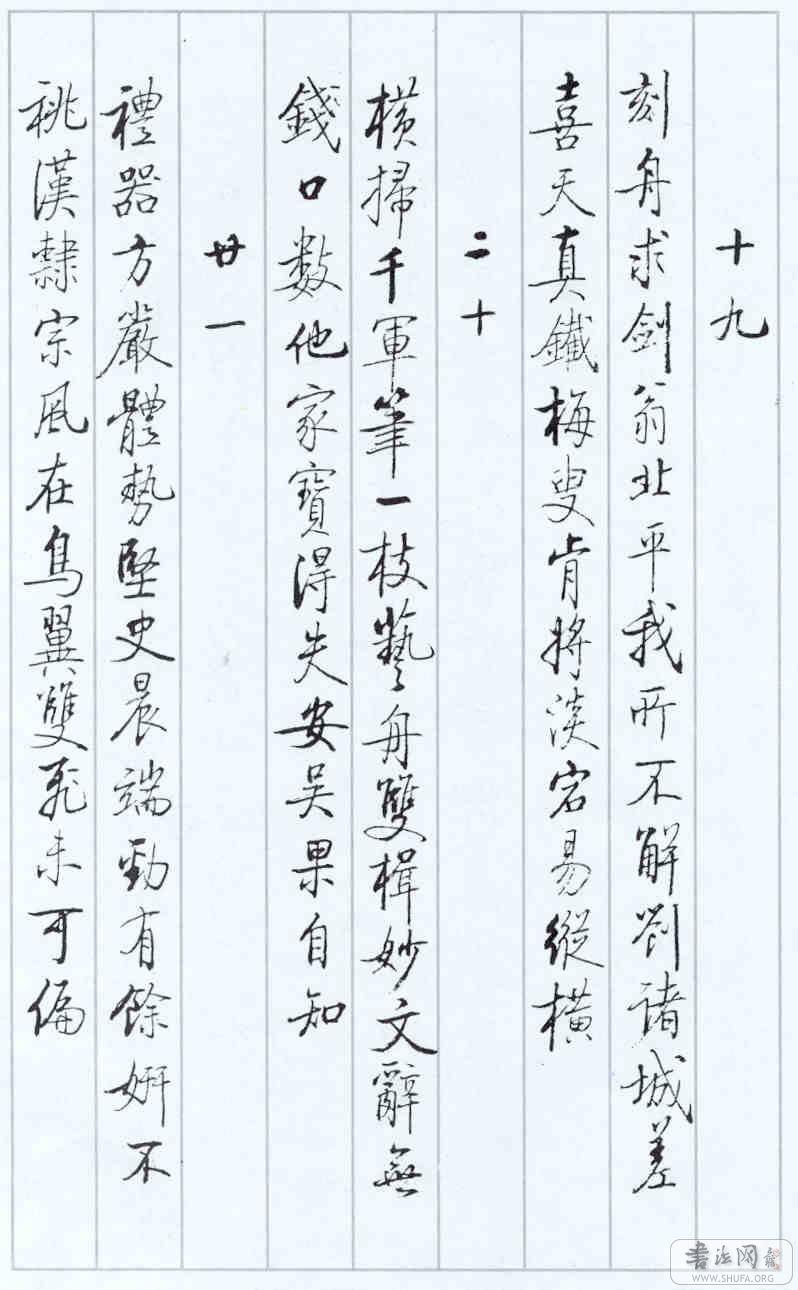 十九
刻舟求劍翁北平我所不解劉諸城差
喜天真鐵梅叟肯將淡宕易縱橫
二十
橫掃千軍筆一枝藝舟雙楫妙文辭無
錢口數他家寶得失安吳果自知
廿一
禮器方嚴體勢堅史晨端勁有餘妍不
祧漢隸宗風在鳥翼雙飛未可偏
書法网
WWW.SHUFA.ORG